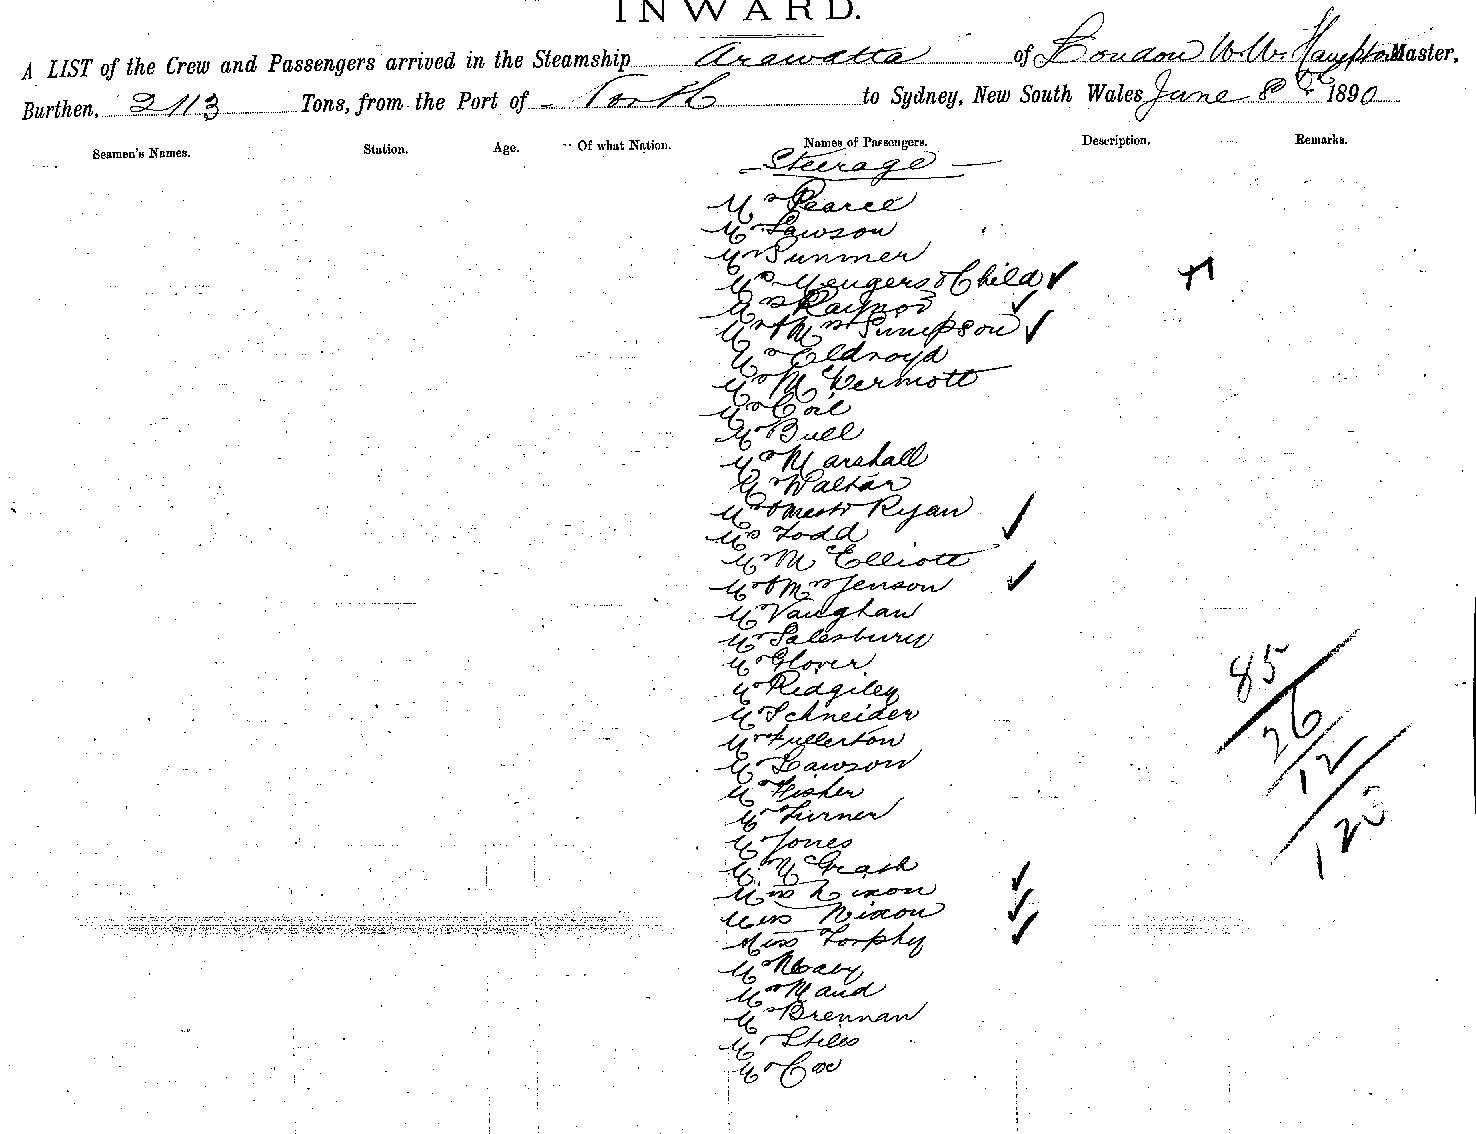 INWARD.
A LIST of the Crew and Passengers arrived in the Steamship Arawatta of London W. W. Hampton Master,
Burthen, 2113 Tons, from the Port of North to Sydney, New South Wales June 8th 1890
Seamen's Names. Station. Age. Of what Nation. Names of Passengers. Description. Remarks.
Steerage
Mr Pearce
Mr Lawson
Mr Sunmer
Mrs Mengers & Child ✓
Mrs Raynor ✓
Mr & Mrs Simpson ✓
Mr Oldroyd
Mr McDermott
Mr Coil
Mr Bull
Mr Marshall
Mr Walter
Mr & Mrs Ryan ✓
Mrs Todd
Mr McElliott
Mr & Mrs Jenson ✓
Mr Vaughan
Mr Salesbury
Mr Glover
Mr Ridgiley
Mr Schneider
Mr Fullerton
Mr Lawson
Mr Fisher
Mr Turner
Mr Jones
Mr McGrath
Miss Nixon ✓
Miss Nixon ✓
Miss Torphy ✓
Mr
Mr Maud
Mr Brennan
Mr Stiles
Mr Cox
85
26
12